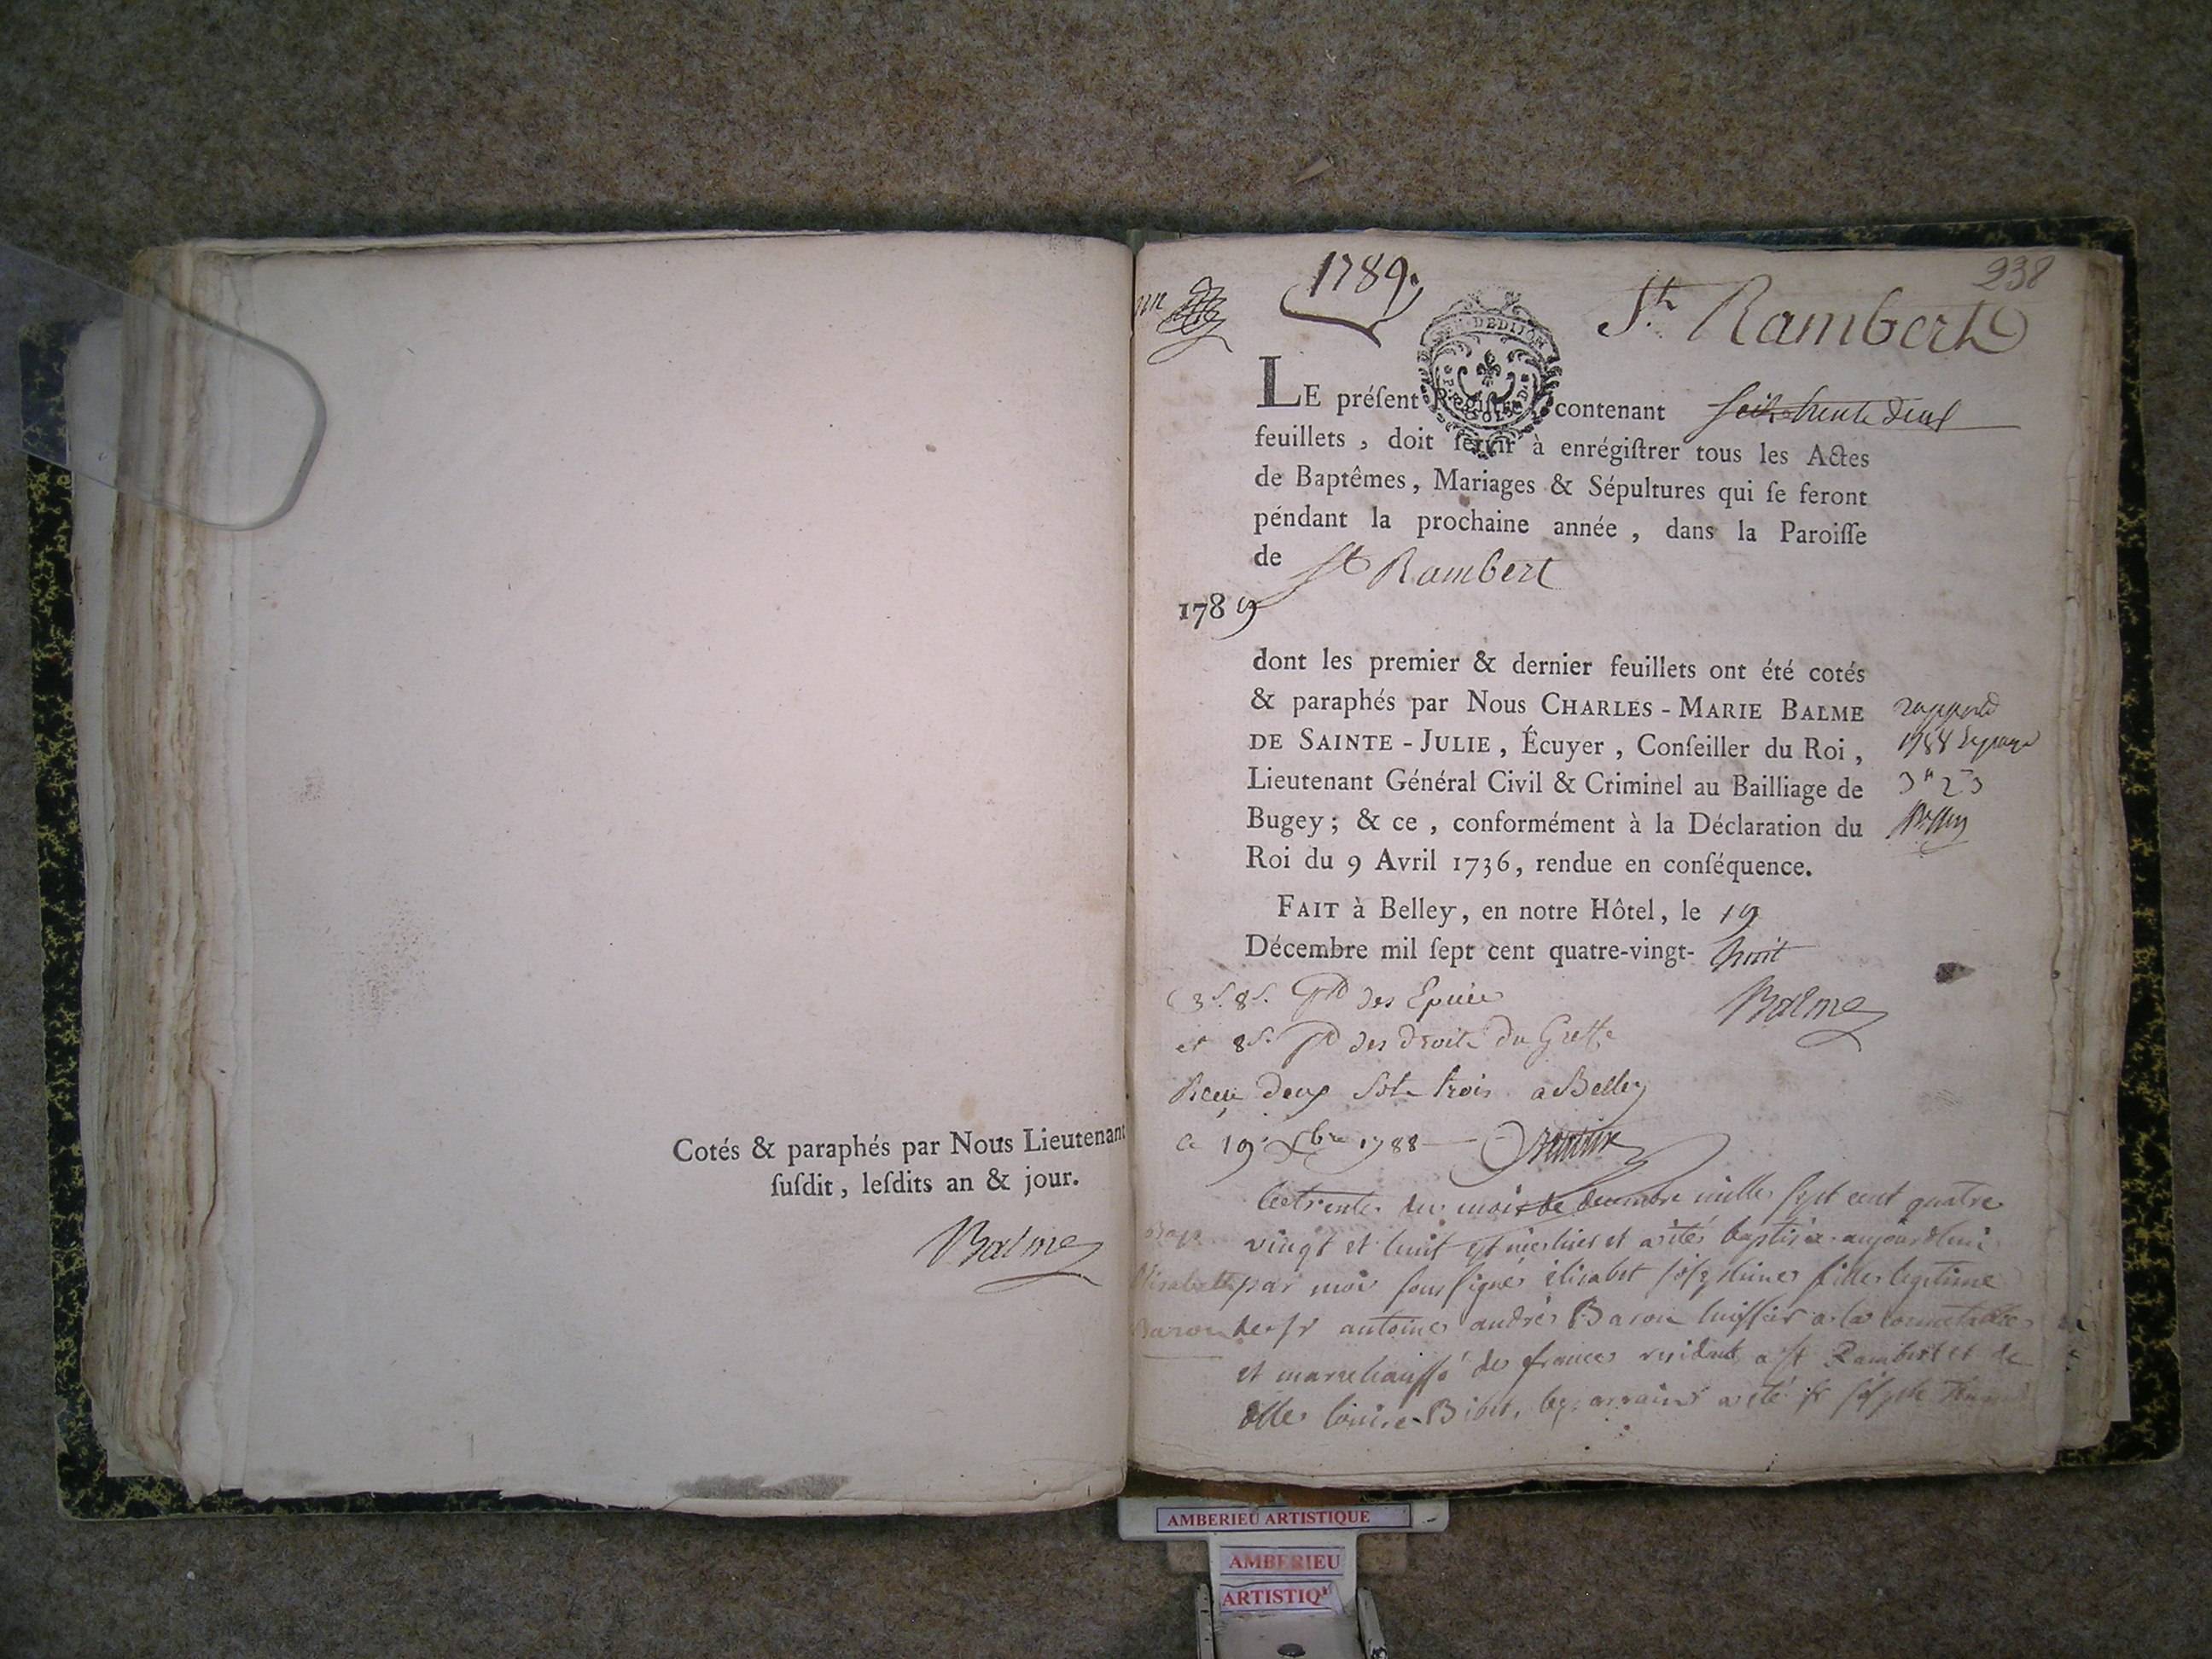 Cotés & paraphés par Nous Lieutenant
ſuſdit, leſdits an & jour.
Balme
1789.
238
St Rambert
DE DIJON
LE préſent Regiſtre contenant trente deux
feuillets, doit ſervir à enrégiſtrer tous les Actes
de Baptêmes, Mariages & Sépultures qui ſe feront
péndant la prochaine année, dans la Paroiſſe
de St Rambert
1789
dont les premier & dernier feuillets ont été cotés
& paraphés par Nous CHARLES-MARIE BALME
DE SAINTE-JULIE, Écuyer, Conſeiller du Roi,
Lieutenant Général Civil & Criminel au Bailliage de
Bugey; & ce, conformément à la Déclaration du
Roi du 9 Avril 1736, rendue en conſéquence.
FAIT à Belley, en notre Hôtel, le 19
Décembre mil ſept cent quatre-vingt-huit
Balme
3s. 8s. pd des Epices
et 8s. pd des droits du Greffe
Reçu deux sols trois a Belley
ce 19 Xbre 1788
Le trente du mois de decembre mille sept cent quatre
vingt et huit est née hier et a été baptisée aujourdhui
par moi soussigné élisabet joséphine fille legitime
de sr antoine andré Baron huissier a la connetablie
et marrechaussé de france residant a st Rambert et de
dlle louise Bibet, le parrain a été sr joseph
Bap.
Elisabeth
Baron
AMBERIEU ARTISTIQUE
AMBERIEU
ARTISTIQ